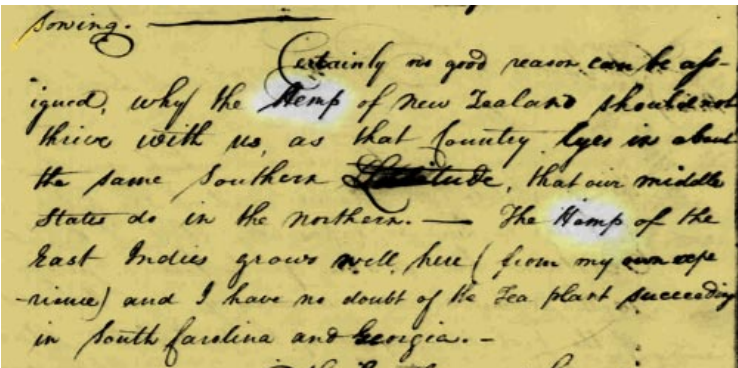 sowing. —
Certainly no good reason can be ass-
igned, why the Hemp of New Zealand should not
thrive with us, as that Country lyes in about
the same Southern Latitude, that our middle
States do in the northern. — The Hemp of the
East Indies grows well here (from my own expe
-rience) and I have no doubt of the Tea plant succeeding
in South Carolina and Georgia. -